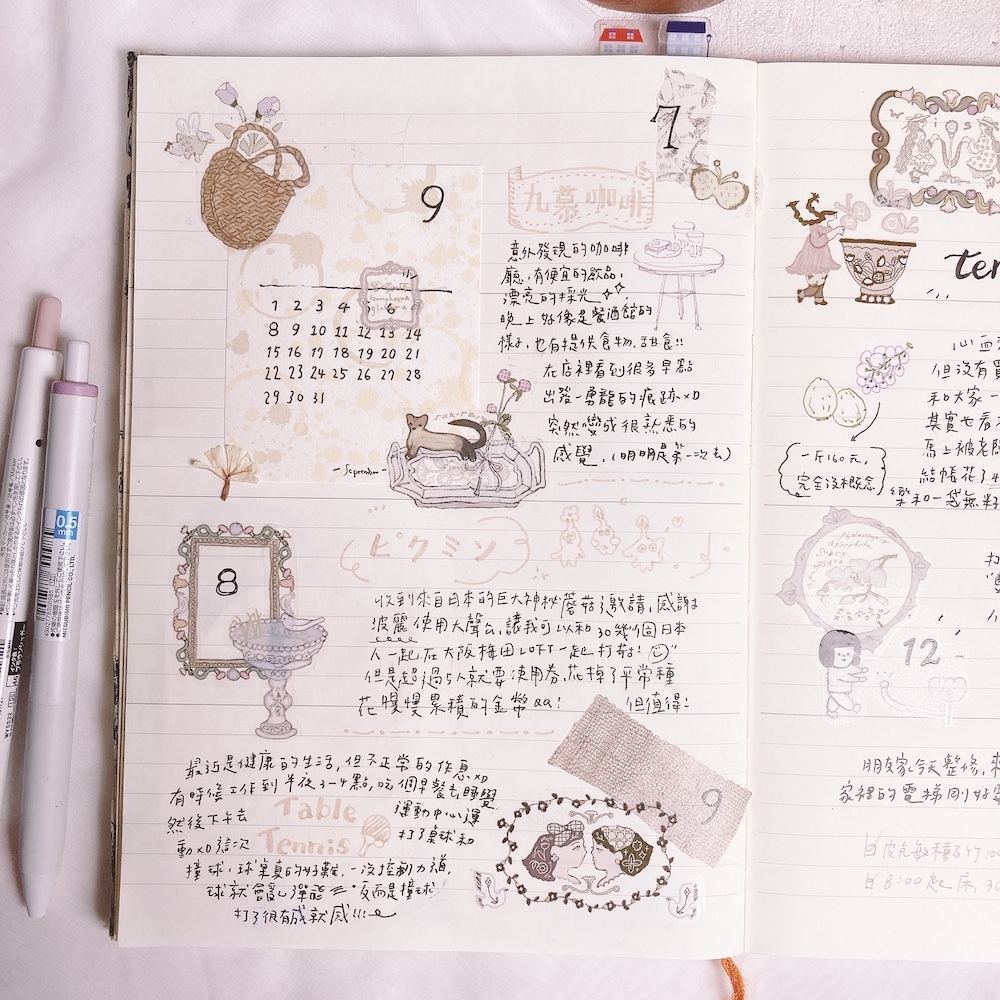 7
九慕咖啡
意外發現的咖啡
廳,有便宜的飲品,
漂亮的採光
晚上好像是餐酒館的
樣子,也有提供食物、甜食!!
在店裡看到很多早點
出發-勇龍的痕跡xD
突然變成很熟悉的
感覺,(明明是第一次去)
9
1 2 3 4 5 6 7
8 9 10 11 12 13 14
15 16 17 18 19 20 21
22 23 24 25 26 27 28
29 30 31
- September -
8
ピクミン
收到來自日本的巨大神秘蘑菇邀請,感謝
波麗使用大聲公,讓我可以和30幾個日本
人一起在大阪梅田LOFT一起打菇!
但是超過5人就要使用券,花掉了平常種
花慢慢累積的金幣QQ! 但值得!
9
最近是健康的生活,但不正常的作息xD
有時候工作到半夜3-4點,吃個早餐去睡覺
然後下午去 運動中心運
動xD這次 打了桌球和
Table
Tennis
撞球,球桌真的好難,一沒控制力道,
球就會亂彈 反而是撞球
打了很有成就感!!!
ter
心血
但沒有買
和大家一
其實也看不
馬上被老闆
結帳花了4
樂和一袋無籽
一斤160元,
完全沒概念
12
朋友家今天整修,來
家裡的電梯剛好
8:00起床,30
0.5
mm
MITSUBISHI PENCIL CO., LTD.